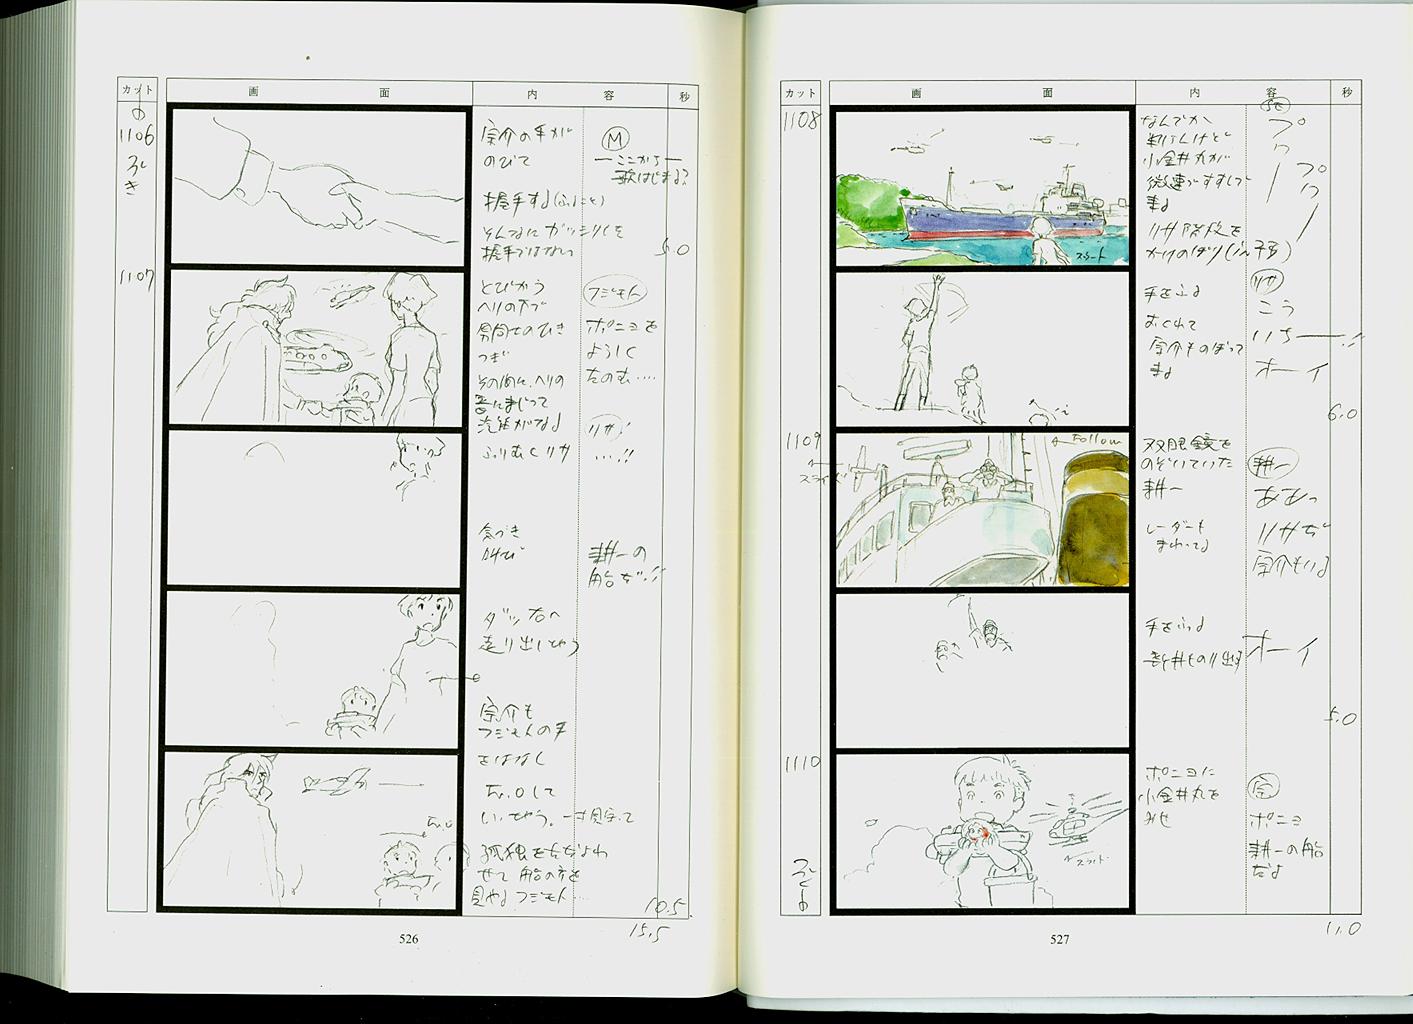 カット
画 面
内 容
秒
の
1106
つづき
宗介の手が
のびて
握手する(ふたこと)
そんなにガッシリした
握手ではない
M
ここから
歌はじまる?
5.0
1107
とびかう
ヘリの下で
つぎ
そのうちに、ヘリの
音にまじって
汽笛がなる
ふりむくリサ
フジモト
ポニョを
よろしく
たのむ‥‥
リサ
…!!
気づき
叫び
耕一の
船だ!!
ダッと右へ
走り出してゆう
宗介も
フジモトの手
をはなし
孤独をただよわ
せて 船の方を
見やる フジモト…
10.5
15.5
526
カット
画 面
内 容
秒
1108
なんでか
判らんけど
小金井丸が
微速ですすんで
来る
リサ 階段を
かけのぼり
スライド
手をふる
おくれて
宗介ものぼって
来る
リサ
こう
いちー!!
オーイ
6.0
1109
スライド
Follow
双眼鏡を
のぞいていた
耕一
レーダーも
まわってる
耕一
ああっ
リサだ
宗介もいる
手をふる
オーイ
5.0
1110
ポニョに
小金井丸を
みせ
宗
ポニョ
耕一の船
だよ
スライド
11.0
527